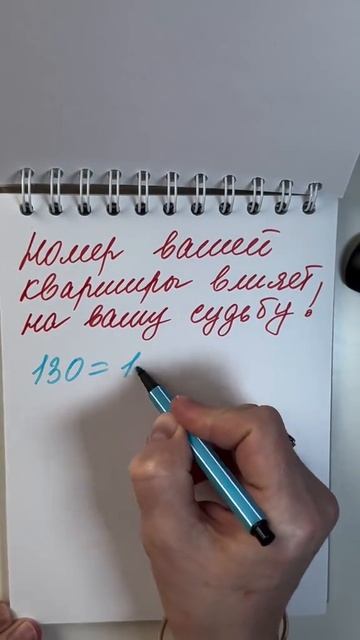 Номер вашей
квартиры влияет
на вашу судьбу!
130 = 1